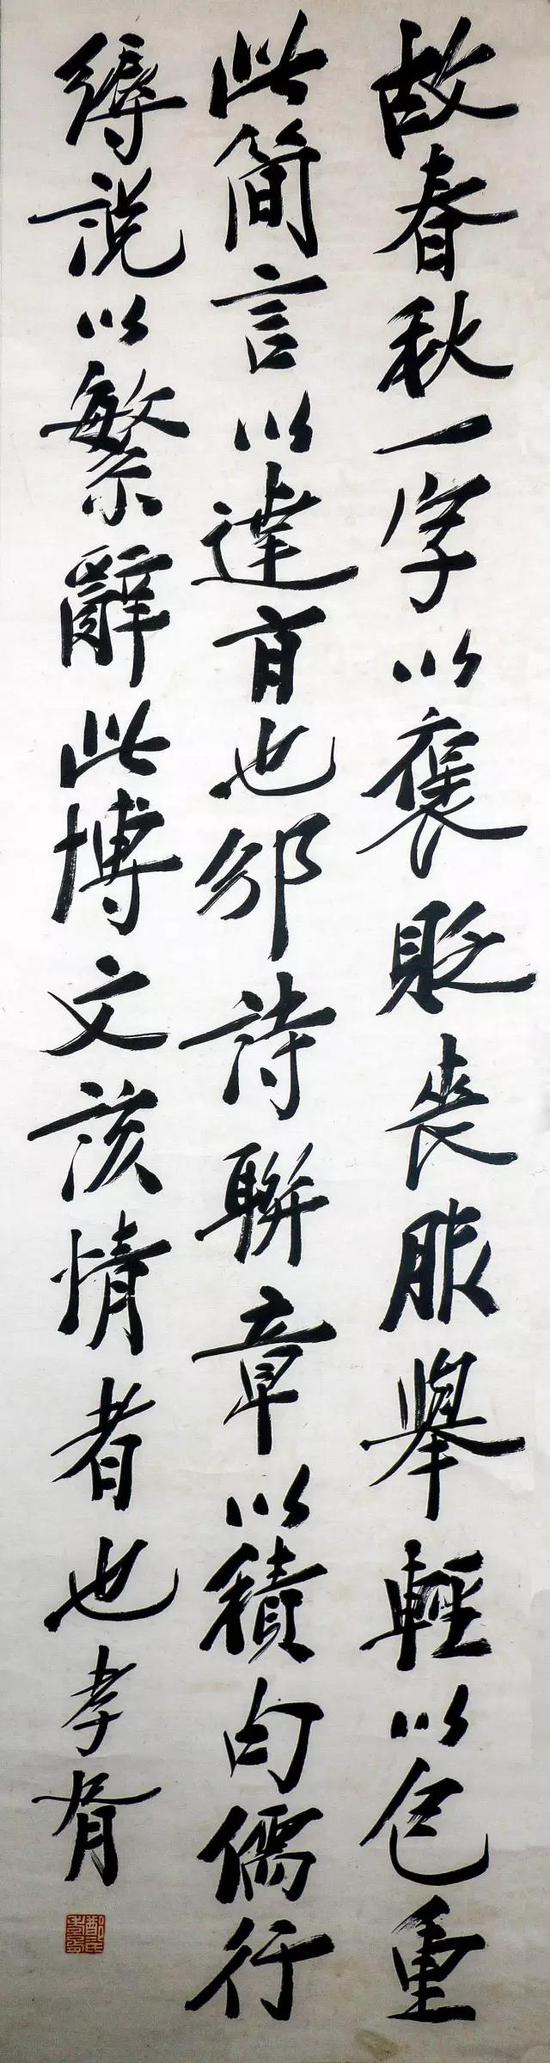 故春秋一字以褒貶喪服舉輕以包重
此簡言以達旨也邠詩聯章以積句儒行
縟說以繁辭此博文該情者也孝胥